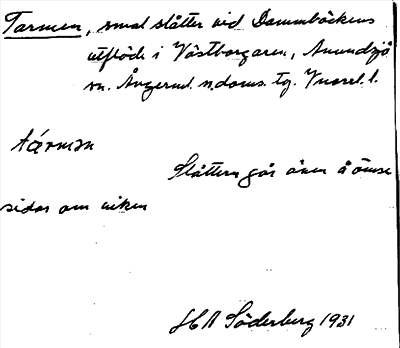 Tarmen, smal slåtter vid Dammbäckens
utflöde i Västborgaren, Anundsjö
sn. Ångerml. n. doms. tg. Vuorel. l.
tármən
Slåttern går även å ömse
sidor om viken
H A Söderberg 1931